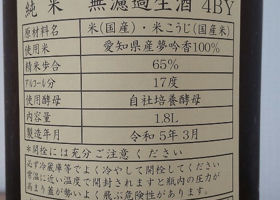 純米 無濾過生酒 4BY
原材料名 米(国産)・米こうじ(国産米)
使用米 愛知県産夢吟香100%
精米歩合 65%
アルコール分 17度
使用酵母 自社培養酵母
内容量 1.8L
製造年月 令和5年3月
*開栓には充分ご注意ください
必ず冷蔵庫等でよく冷やして開栓してください
常温に近い温度で開封されますと瓶内の圧力が
あまり蓋が勢いよく飛ぶ危険性があります。